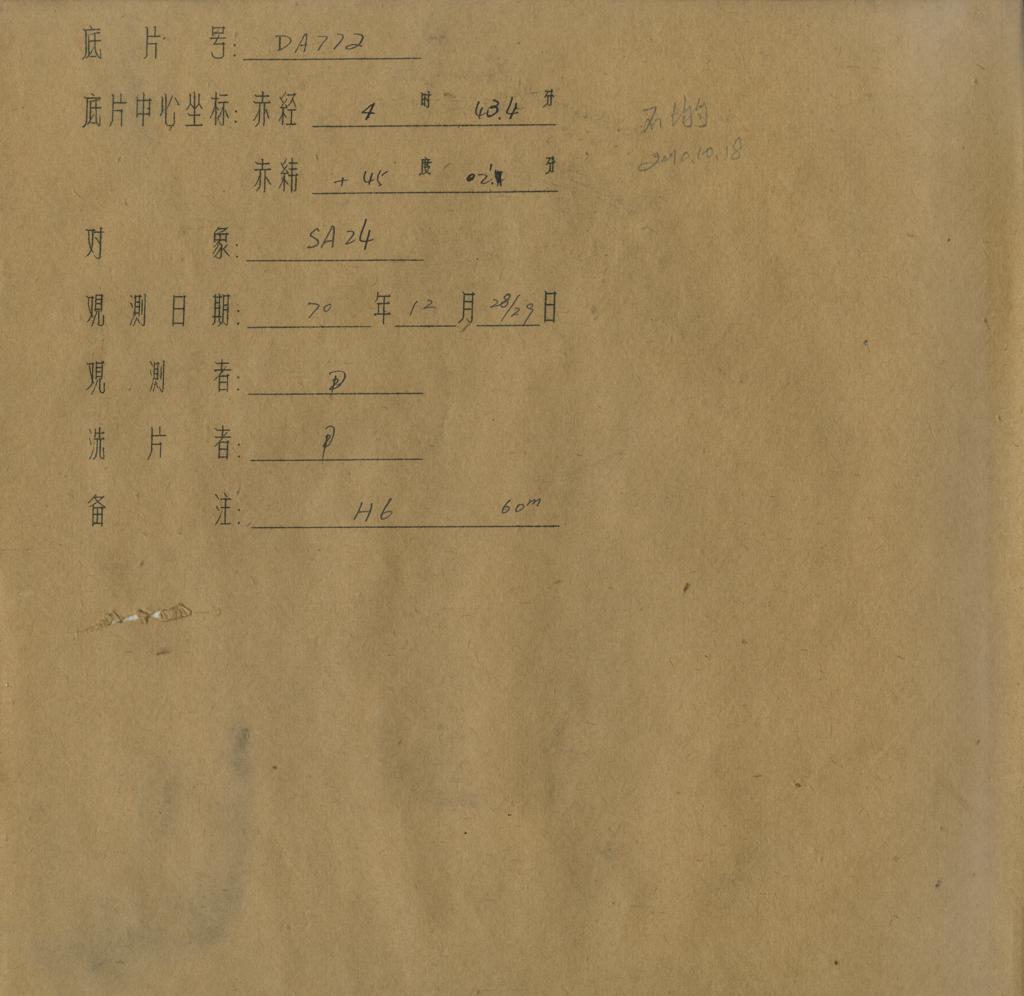 底片号: DA772
底片中心坐标: 赤经 4 时 43.4 分
赤纬 +45 度 02' 分
对象: SA24
观测日期: 70 年 12 月 28/29 日
观测者:
洗片者:
备注: H6 60m
2010.10.18